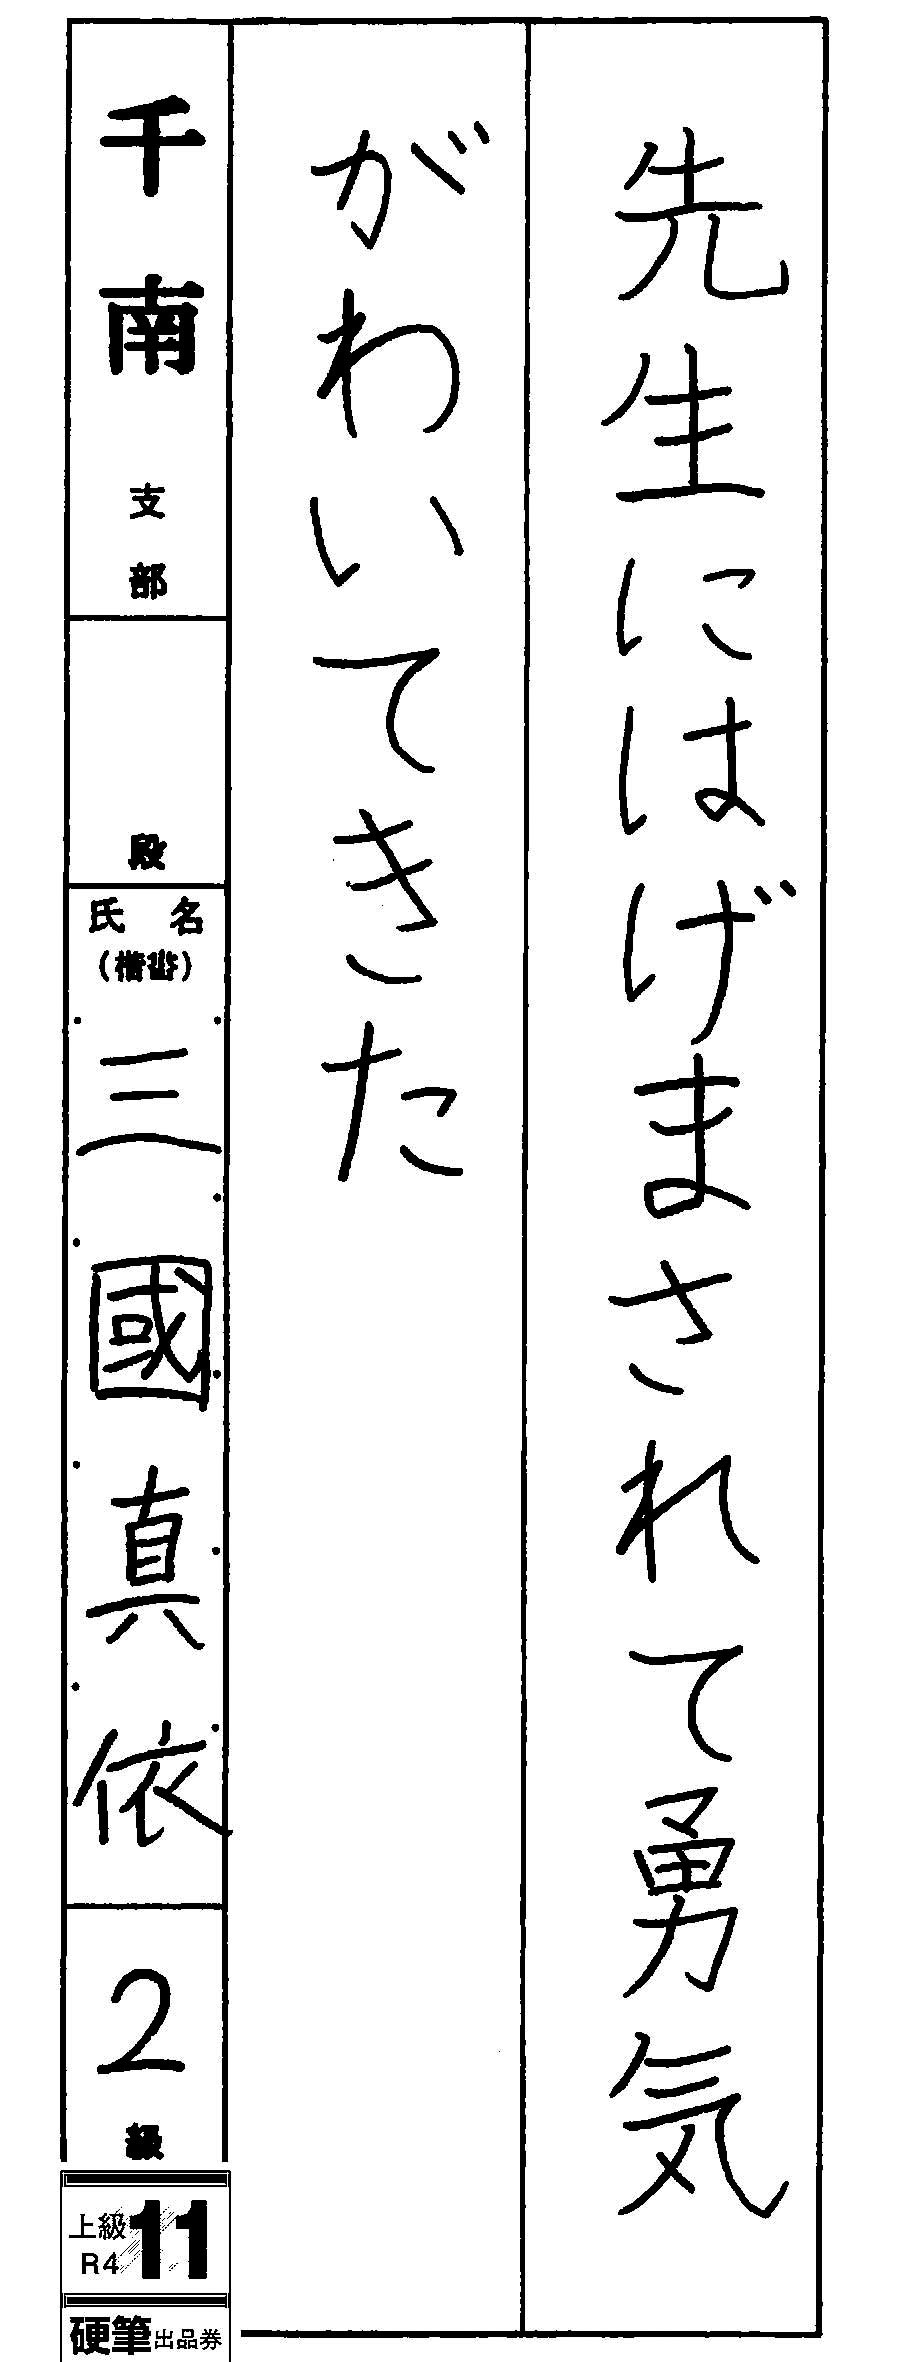 先生にはげまされて勇気
がわいてきた
千南支部
段
氏名
(楷書)
三國真依
2級
上級
R4
11
硬筆出品券